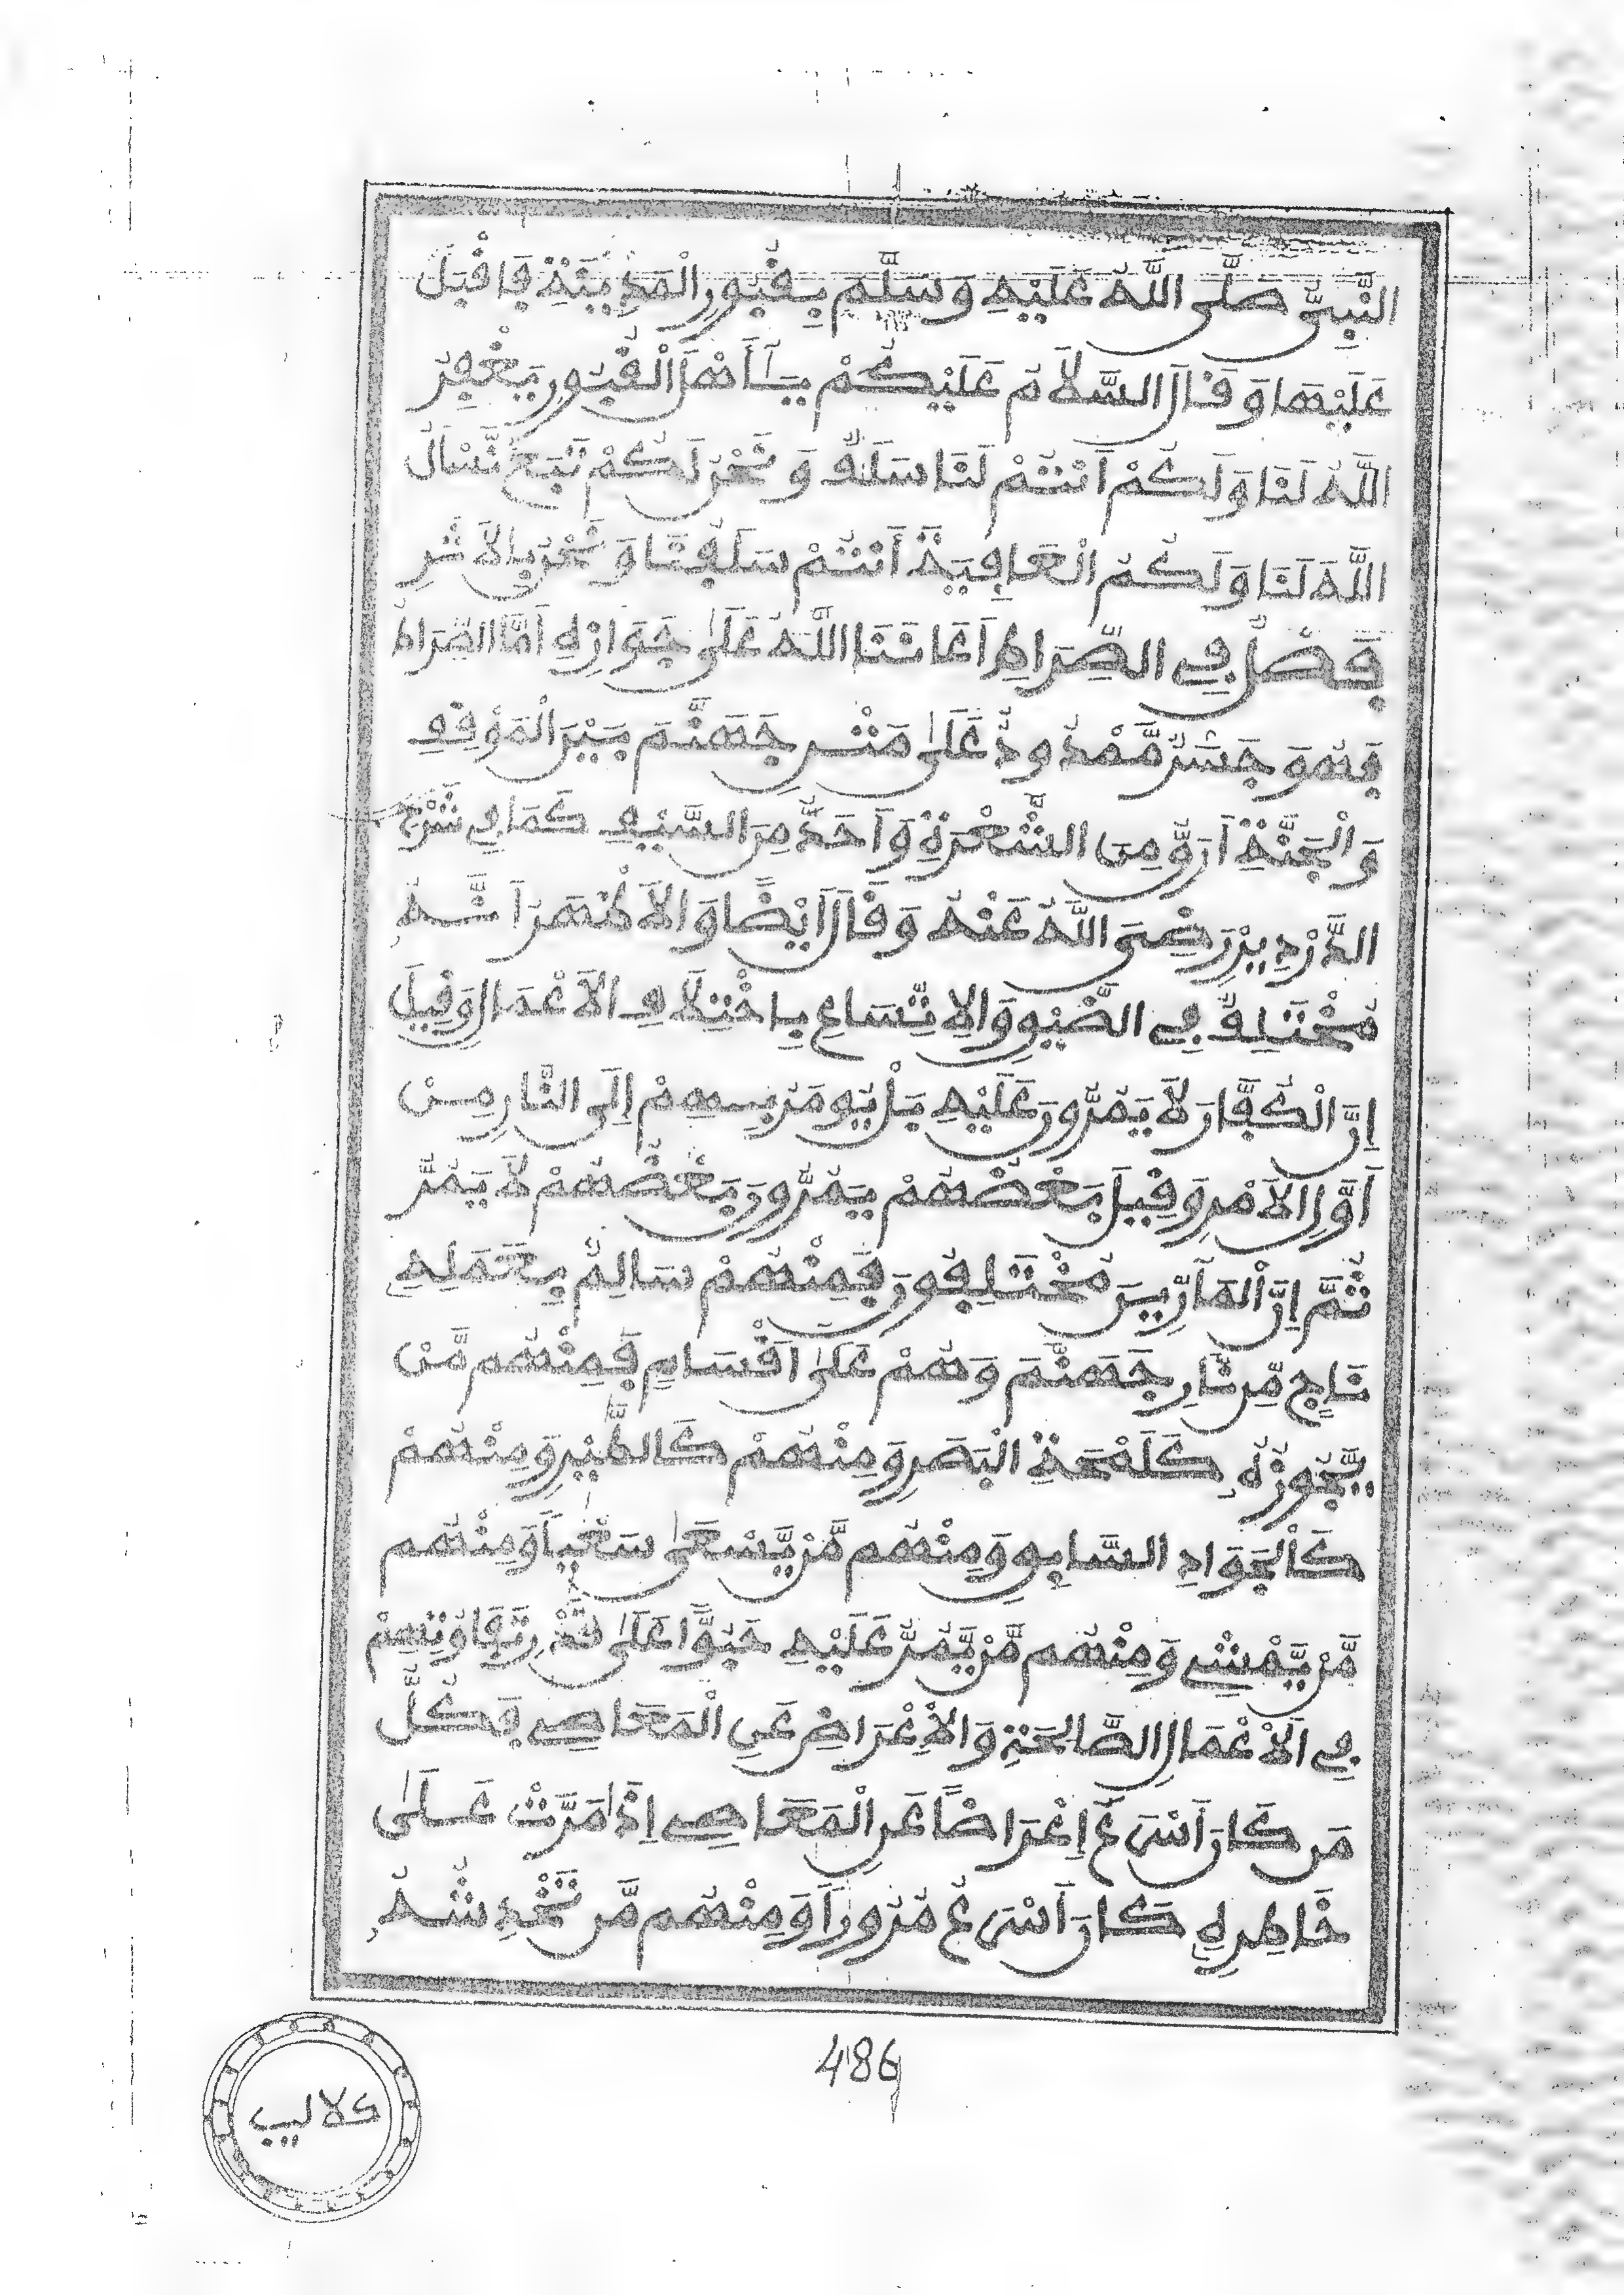 النَّبِيُّ صَلَّى اللَّهُ عَلَيْهِ وَسَلَّمَ بِقُبُورِ الْمَدِينَةِ فَأَقْبَلَ
عَلَيْهَا وَقَالَ السَّلَامُ عَلَيْكُمْ يَا أَهْلَ الْقُبُورِ يَغْفِرُ
اللَّهُ لَنَا وَلَكُمْ أَنْتُمْ لَنَا سَلَفٌ وَنَحْنُ لَكُمْ تَبَعٌ نَسْأَلُ
اللَّهَ لَنَا وَلَكُمُ الْعَافِيَةَ أَنْتُمْ سَلَفُنَا وَنَحْنُ بِالْأَثَرِ
فَصْلٌ فِي الصِّرَاطِ أَعَانَنَا اللَّهُ عَلَى جَوَازِهِ أَمَّا الصِّرَاطُ
فَهُوَ جَسْرٌ مَّمْدُودٌ عَلَى مَتْنِ جَهَنَّمَ بَيْنَ الْمَوْقِفِ
وَالْجَنَّةِ أَرَقُّ مِنَ الشَّعْرَةِ وَأَحَدُّ مِنَ السَّيْفِ كَمَا فِي شَرْحِ
الدَّرْدِيرِ رَضِيَ اللَّهُ عَنْهُ وَقَالَ أَيْضًا وَالْأَظْهَرُ أَنَّهُ
مُخْتَلِفٌ فِي الضِّيْقِ وَالْاِتِّسَاعِ بِاخْتِلَافِ الْأَعْمَالِ وَقِيلَ
إِنَّ الْكُفَّارَ لَا يَمُرُّونَ عَلَيْهِ بَلْ يُومَرُ بِهِمْ إِلَى النَّارِ مِنْ
أَوَّلِ الْأَمْرِ وَقِيلَ بَعْضُهُمْ يَمُرُّونَ وَبَعْضُهُمْ لَا يَمُرُّ
ثُمَّ إِنَّ الْمَارِّينَ مُخْتَلِفُونَ فَمِنْهُمْ سَالِمٌ بِعَمَلِهِ
نَاجٍ مِّن نَّارِ جَهَنَّمَ وَهُمْ عَلَى أَقْسَامٍ فَمِنْهُم مَّنْ
يَّجُوزُهُ كَلَمْحَةِ الْبَصَرِ وَمِنْهُمْ كَالطَّيْرِ وَمِنْهُمْ
كَالْجَوَادِ السَّابِقِ وَمِنْهُم مَّنْ يَّسْعَى سَعْيًا وَمِنْهُم
مَّنْ يَّمْشِي وَمِنْهُم مَّنْ يَّمُرُّ عَلَيْهِ حَبْوًا عَلَى قَدْرِ تَفَاوُتِهِمْ
فِي الْأَعْمَالِ الصَّالِحَةِ وَالْإِعْرَاضِ عَنِ الْمَعَاصِي فَكُلُّ
مَن كَانَ أَسْرَعَ إِعْرَاضًا عَنِ الْمَعَاصِي إِذَا مَرَّتْ عَلَى
خَاطِرِهِ كَانَ أَسْرَعَ مُرُورًا وَمِنْهُم مَّن تَخْدِشُهُ
كلاليب
486